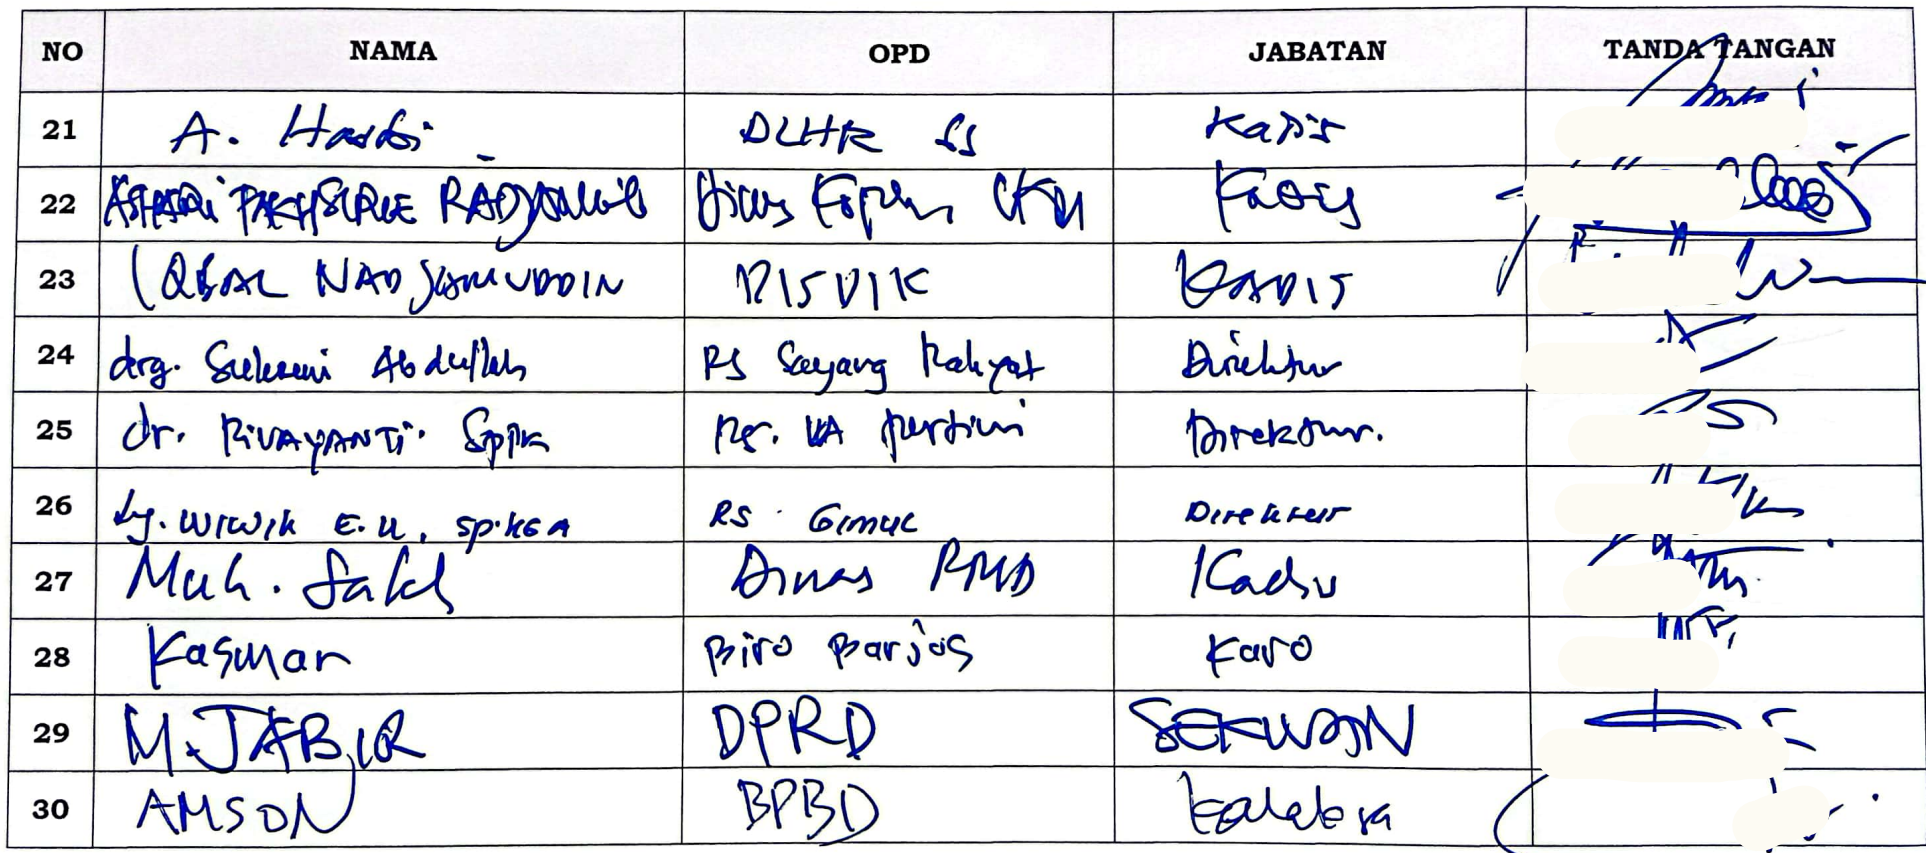 NO NAMA OPD JABATAN TANDA TANGAN
21 A. Hasbi DLHK SS Kadis
22 ASHARI FAKHSIRIE RADJAMILO Dinas Kadis
23 IQBAL NADJAMUDDIN DISDIK KADIS
24 drg. Abdullah RS Sayang Rakyat Direktur
25 dr. RIVAYANTI. SpPK RS. Pertiwi Direktur.
26 drg. WIWIK E.U, Sp.KGA RS. GIMUL Direktur
27 Muh. Saleh Dinas PMD Kadis
28 Kasman Biro Barjas Karo
29 M. JABIR DPRD SEKWAN
30 AMSON BPBD Kalaksa